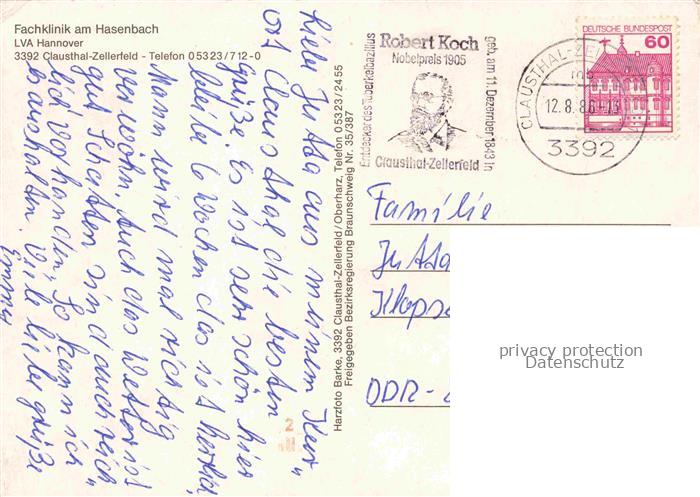 Fachklinik am Hasenbach
LVA Hannover
3392 Clausthal-Zellerfeld - Telefon 05323/712-0
Liebe Jutta aus meinem Kur-
ort Clausthal die besten
Grüße. Es ist sehr schön hier
bleibe 6 Wochen das ist herrlich
Mann wird mal richtig
verwöhnt, auch das Wetter ist
gut Schatten sind auch reich
lich vorhanden, So kann ich
es aushalten. Viele liebe Grüße
Emmy
Harzfoto Barke, 3392 Clausthal-Zellerfeld/Oberharz, Telefon 05323/2455
Freigegeben Bezirksregierung Braunschweig Nr. 35/387
Entdecker des Tuberkelbazillus
Robert Koch
Nobelpreis 1905
geb. am 11. Dezember 1843 in
Clausthal-Zellerfeld
CLAUSTHAL-ZE
12.8.86-13
3392
DEUTSCHE BUNDESPOST
60
Familie
Jutta
Klaps
DDR-
privacy protection
Datenschutz